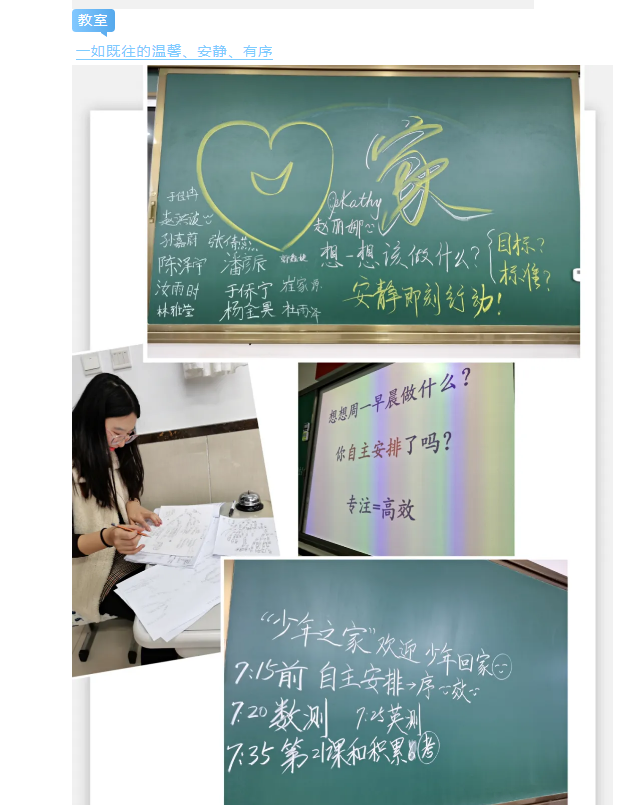 教室
一如既往的温馨、安静、有序
家
Kathy
赵丽娜
孙嘉蔚
陈泽宇 潘彦辰
汝雨时 于侨宁
林雅莹 杨全昊 杜雨泽
想一想该做什么?
目标?
标准?
安静即刻行动!
想想周一早晨做什么?
你自主安排了吗?
专注=高效
“少年之家”欢迎 少年回家
7:15前 自主安排→序 效
7:20 数测 7:25英测
7:35 第21课和积累 考